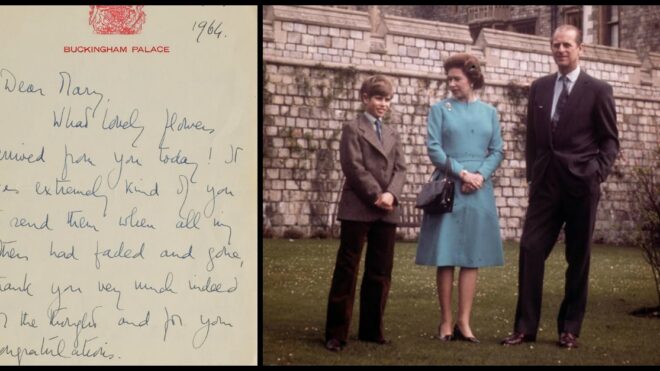 1964.
BUCKINGHAM PALACE
Dear Mary,
What lovely flowers
rrived from you today! It
as extremely kind of you
send them when all my
thers had faded and gone,
hank you very much indeed
or the thought and for your
ongratulations.